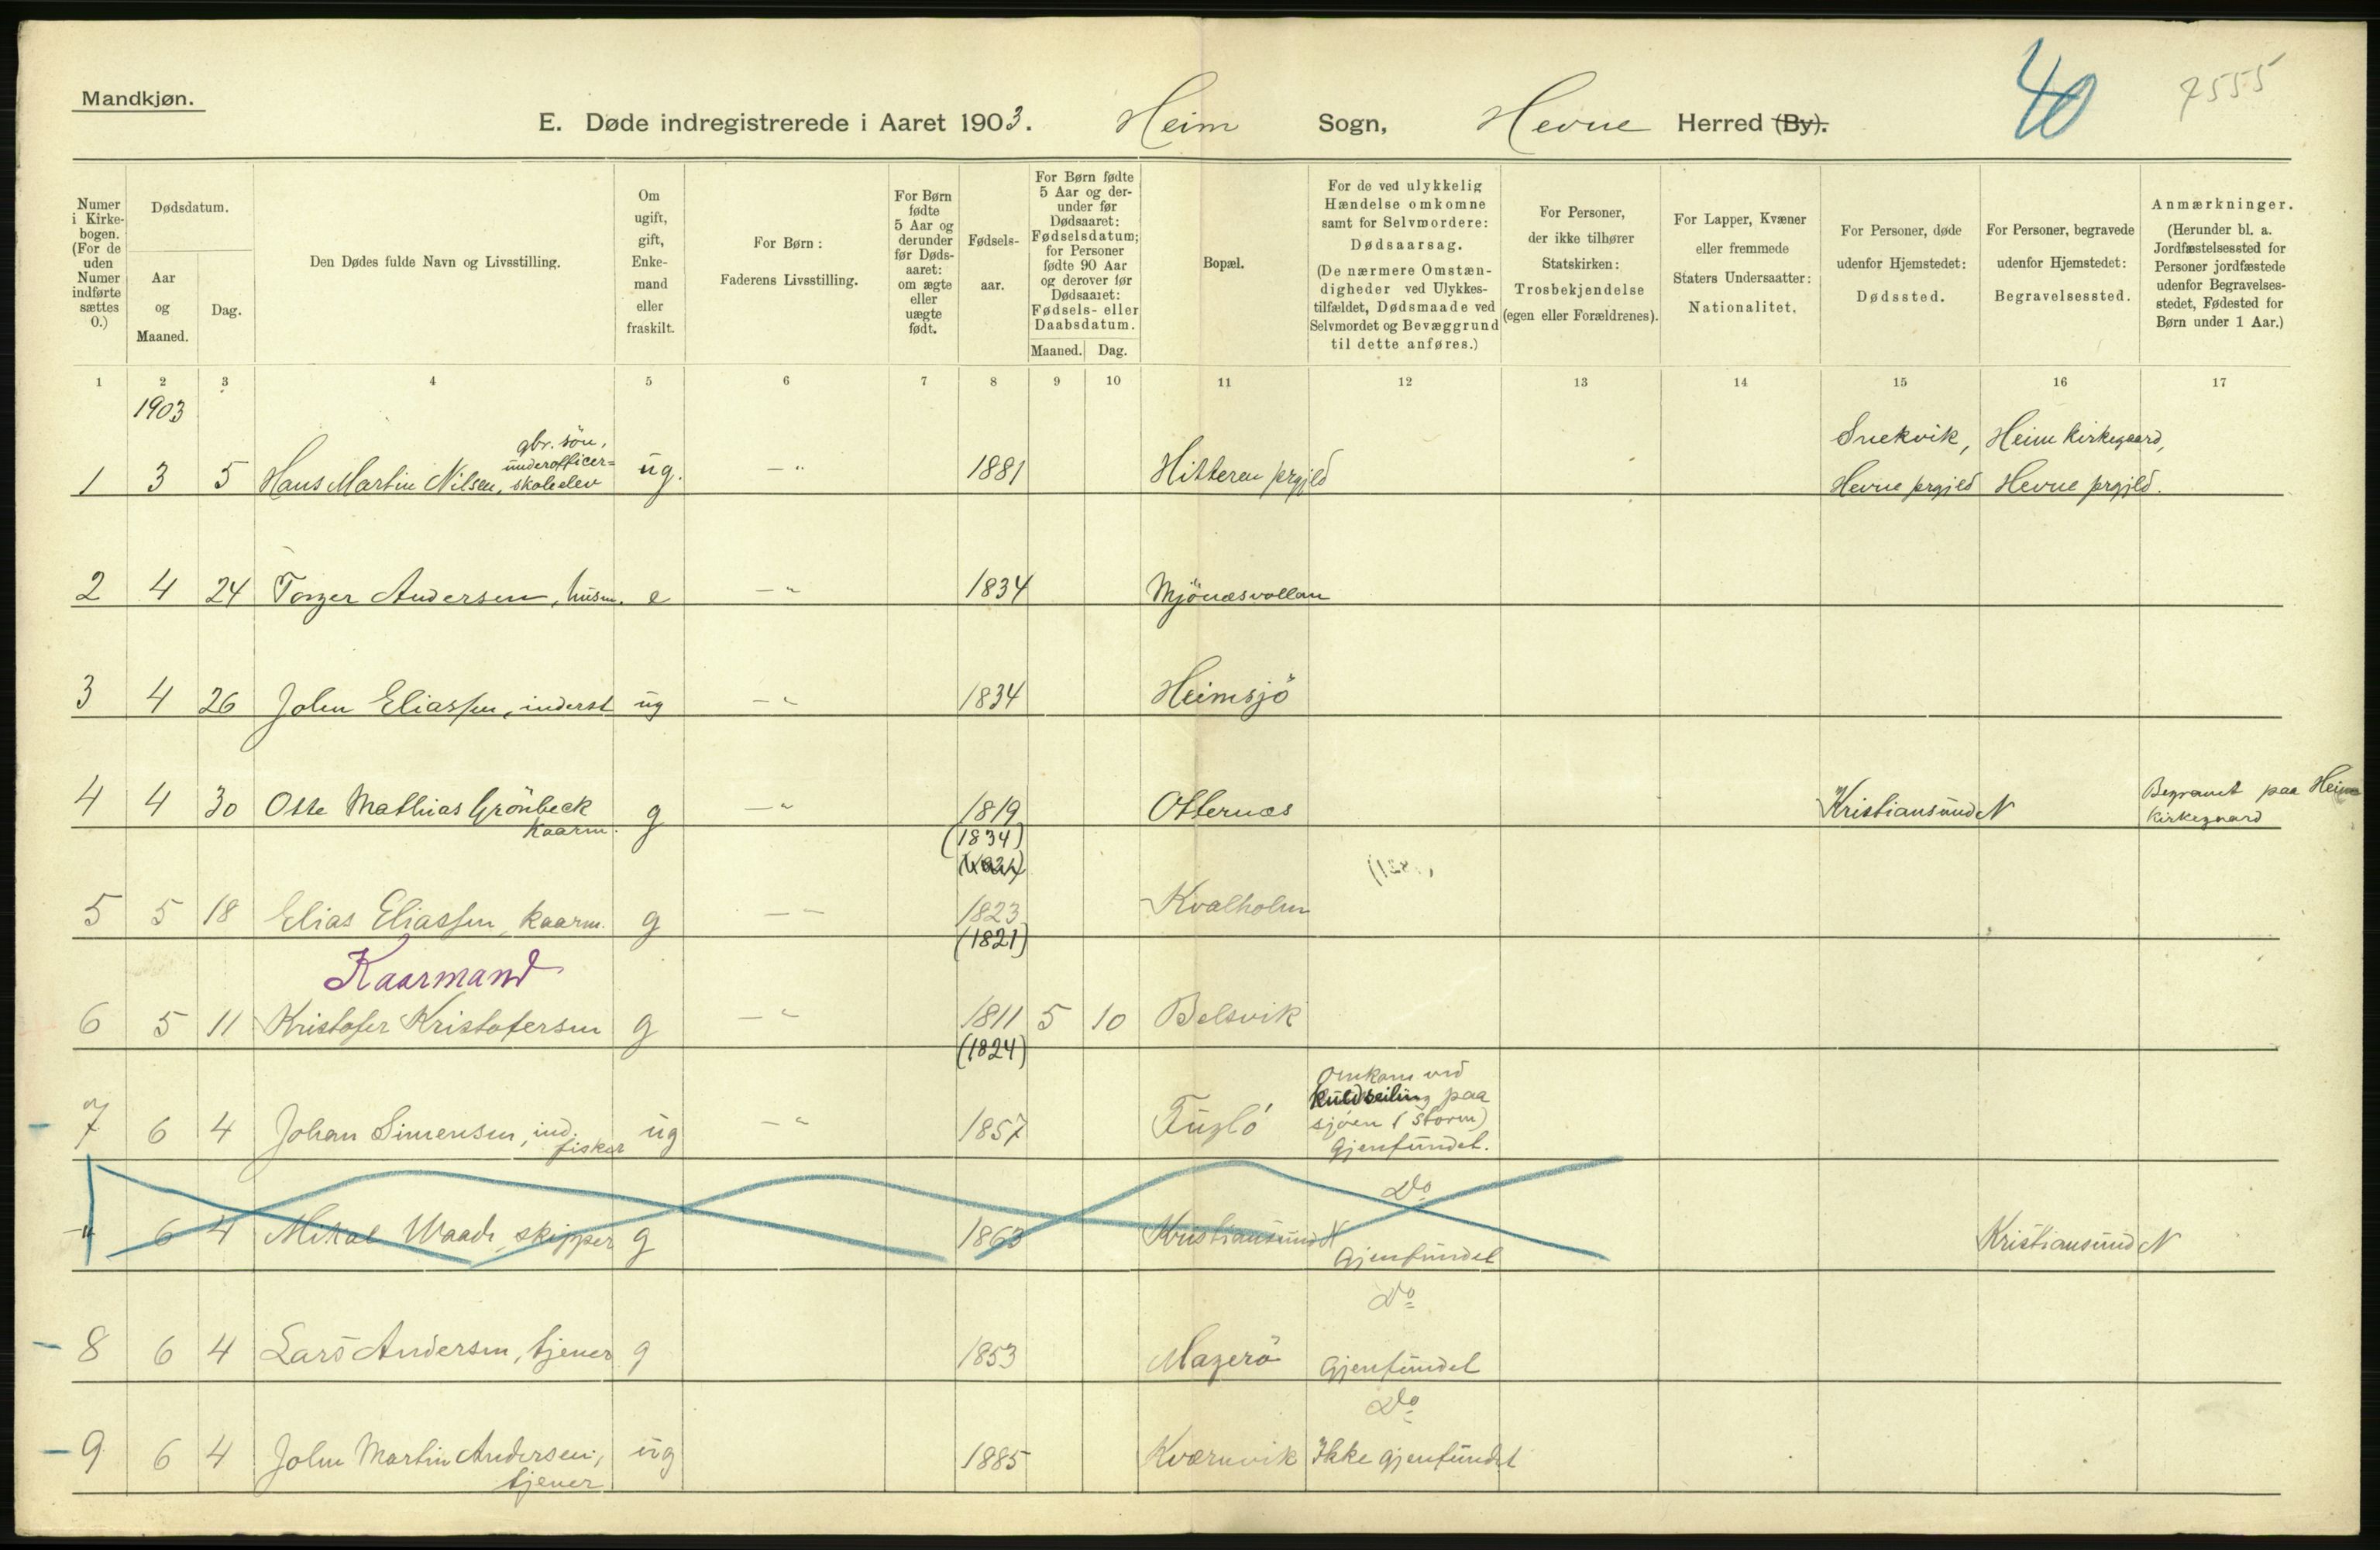 Mandkjøn.
40
7555
E. Døde indregistrerede i Aaret 1903. Heim Sogn, Hevne Herred (By).
Numer i Kirkebogen. (For de uden Numer indførte sættes 0.)
Dødsdatum.
Aar og Maaned.
Dag.
Den Dødes fulde Navn og Livsstilling.
Om ugift, gift, Enkemand eller fraskilt.
For Børn: Faderens Livsstilling.
For Børn fødte 5 Aar og derunder før Dødsaaret: om ægte eller uægte født.
Fødselsaar.
For Børn fødte 5 Aar og derunder før Dødsaaret: Fødselsdatum; for Personer fødte 90 Aar og derover før Dødsaaret: Fødsels- eller Daabsdatum.
Maaned. Dag.
Bopæl.
For de ved ulykkelig Hændelse omkomne samt for Selvmordere: Dødsaarsag. (De nærmere Omstændigheder ved Ulykkestilfældet, Dødsmaade ved Selvmordet og Bevæggrund til dette anføres.)
For Personer, der ikke tilhører Statskirken: Trosbekjendelse (egen eller Forældrenes).
For Lapper, Kvæner eller fremmede Staters Undersaatter: Nationalitet.
For Personer, døde udenfor Hjemstedet: Dødssted.
For Personer, begravede udenfor Hjemstedet: Begravelsessted.
Anmærkninger. (Herunder bl. a. Jordfæstelsessted for Personer jordfæstede udenfor Begravelsesstedet, Fødested for Børn under 1 Aar.)
1 2 3 4 5 6 7 8 9 10 11 12 13 14 15 16 17
1903
gbr. sön,
underofficer=
Snekvik, Heim kirkegaard,
1 3 5 Hans Martin Nilsen, skoleelev ug. -"- 1881 Hitteren prgjld Hevne prgjld Hevne prgjld.
2 4 24 Torger Andersen, husm. e -"- 1834 Mjönæsvollan
3 4 26 John Eliassen, inderst ug -"- 1834 Heimsjö
Begravet paa Heim
4 4 30 Otte Mathias Grönbeck g -"- 1819 Otternæs Kristiansund N Kirkegaard
kaarm. (1834)
5 5 18 Elias Eliassen, kaarm. g -- 1823 Kvalholm
(1821)
Kaarmand
6 5 11 Kristofer Kristofersen g -"- 1811 5 10 Belsvik
(1824)
Omkom ved
kuldseiling paa
7 6 4 Johan Simensen, ind. ug -"- 1857 Fuglö sjöen (Storm)
fisker Gjenfundet.
Do
" 6 4 Mikal Waade, skipper g 1863 Kristiansund N Kristiansund N
Gjenfundet
Do
8 6 4 Lars Andersen, tjener g 1853 Magerö Gjenfundet
Do
9 6 4 John Martin Andersen, ug 1885 Kværnvik Ikke gjenfundet
tjener